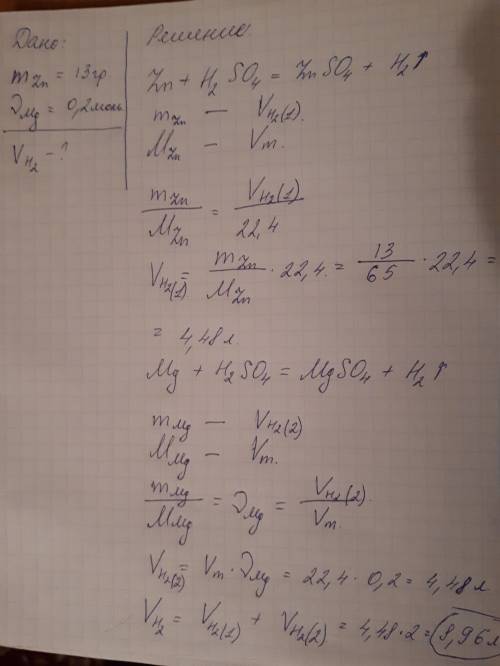 Дано:
m Zn = 13 гр
ν Mg = 0,2 моль
V H2 - ?
Решение.
Zn + H2SO4 = ZnSO4 + H2↑
m Zn — V H2(1).
M Zn — Vm.
m Zn / M Zn = V H2(1) / 22,4
V H2(1) = m Zn / M Zn · 22,4 = 13 / 65 · 22,4 =
= 4,48 л.
Mg + H2SO4 = MgSO4 + H2↑
m Mg — V H2(2)
M Mg — Vm.
m Mg / M Mg = ν Mg = V H2(2) / Vm.
V H2(2) = Vm · ν Mg = 22,4 · 0,2 = 4,48 л
V H2 = V H2(1) + V H2(2) = 4,48 · 2 = 8,96 л